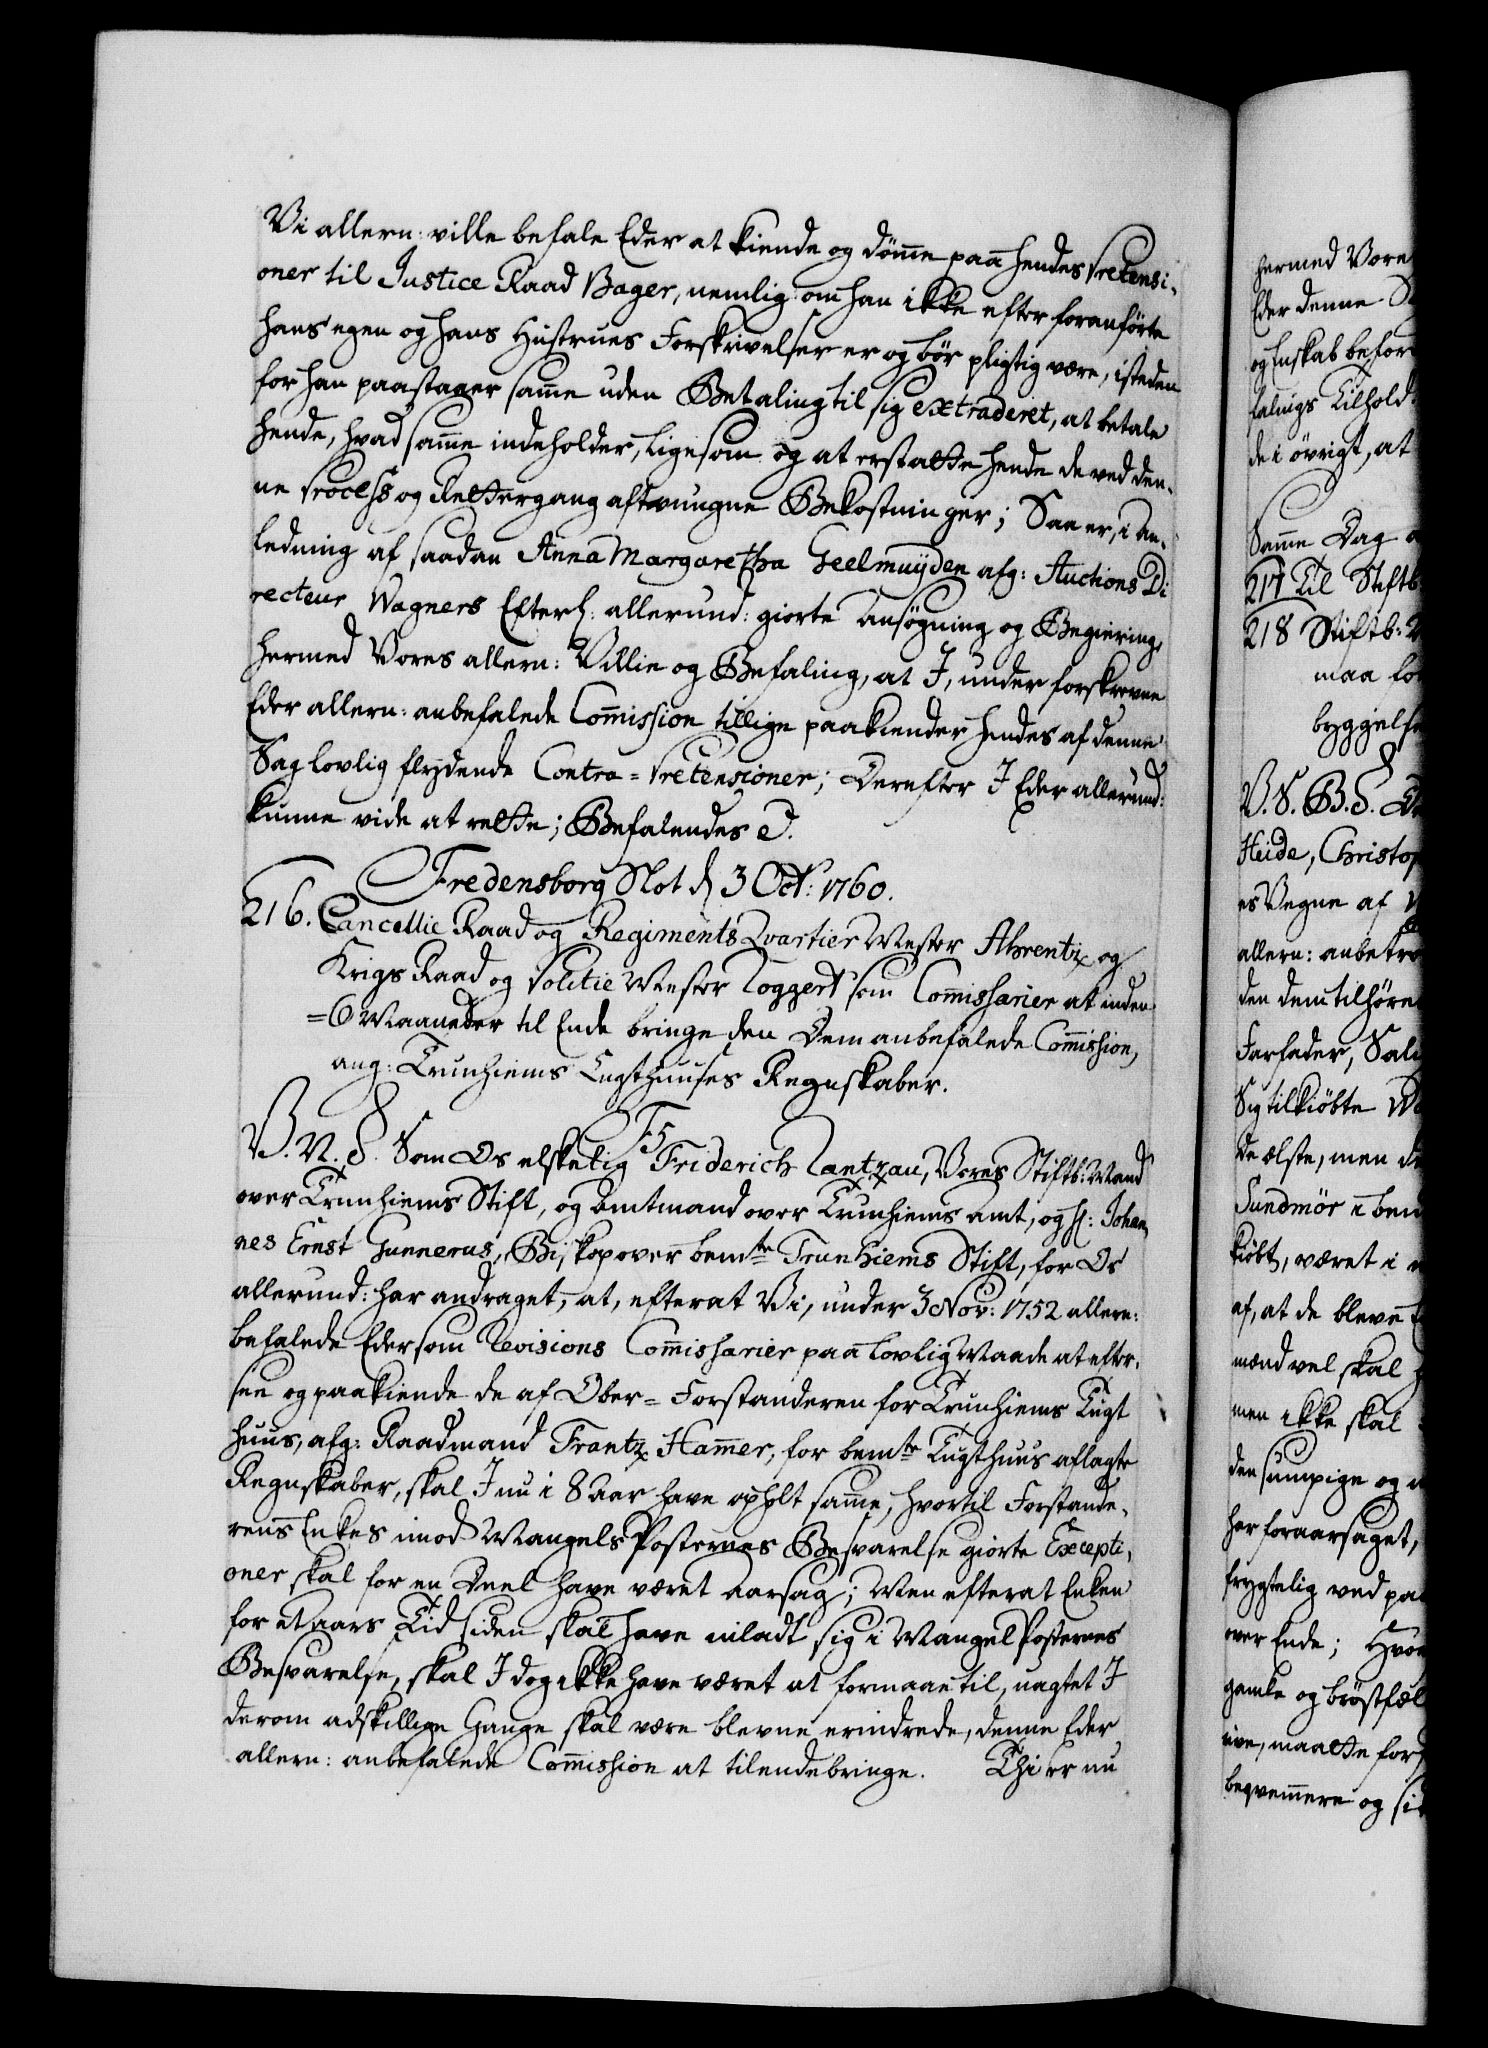 Vi allern: ville befale Eder at kiende og döm̄e paa hendes Prætensi-
oner til Justice Raad Bager, nemlig: om han ikke efter foranförte
hans egen og hans Hustrues Forskrivelser er og bör pligtig være, isteden
for han paastaaer sam̄e uden Betaling til sig extraderet, at betale
hende, hvad sam̄e indeholder, ligesom og at erstatte hende de ved den-
ne Process og Rettergang aftvungne Bekostninger; Saa er, i An-
ledning af saadan Anna Margaretha Geelmuÿden afg: Auctions Di
recteur Wagners Efterl: allerund: giorte Ansögning og Begiering,
hermed Vores allern: Villie og Befaling, at I, under forskrevne
Eder allern: anbefalede Com̄ission tillige paakiender hendes af denne
Sag lovlig flydende Contra=Prætensioner; Derefter I Eder allerund:
kunne vide at rette; Befalendes &.
Fredensborg Slot d 3 Octr: 1760.
216. Cancellie Raad og Regiments Qvartier Mester Ahrentz og
Krigs Raad og Politie Mester Coggert som Com̄issarier at inden
=6 Maaneder til Ende bringe den Dem anbefalede Com̄ission,
ang: Trunhiems Tugthuuses Regnskaber.
F5
V. N. S. Som Os elskelig Friderich Rantzau, Vores Stiftb: Mand
over Trunhiems Stift, og Amtmand over Trunhiems Amt, og H: Johan
nes Ernst Gunnerus, Biskop over bemte Trunhiems Stift, for Os
allerund: har andraget, at, efterat Vi, under 3 Nov: 1752 allern:
befalede Eder som Revisions Com̄issarier paa lovlig Maade at efter-
see og paakiende de af Ober=Forstanderen for Trunhiems Tugt
huus, afg: Raadmand Frantz Ham̄er, for bemte Tugthuus aflagte
Regnskaber, skal I nu i 8 Aar have opholt sam̄e, hvortil Forstande-
rens Enkes imod Mangels Posternes Besvarelse giorte Excepti-
oner skal for en Deel have været Aarsag; Men efterat Enken
for et Aars Tid siden skal have indladt sig i Mangel Posternes
Besvarelse, skal I dog ikke have været at formaae til, uagtet I
derom adskillige Gange skal være blevne erindrede, denne Eder
allern: anbefalede Com̄ission at tilendebringe. Thi er nu
hermed Vore
Eder denne
og Enskab befor
falings Tilhold
de i øvrigt, at
Sam̄e Dag
217 Til Stiftb
218 Stiftb:
maa
byggelse
V. S. B. S.
Heide, Christop
es Vegne af
allern: anbetro
den dem tilhøre
Farfader, Sali
Sig tilkiöbte
De ælste, men
Sundmör i bem
kiöbt, været i
af, at de bleve
mænd vel skal
men ikke skal
den sumpige og
har foraarsaget,
frygtelig ved paa
over Ende; Hvor
gamle og bröstfæl
ive, maatte for
beqvemmere og